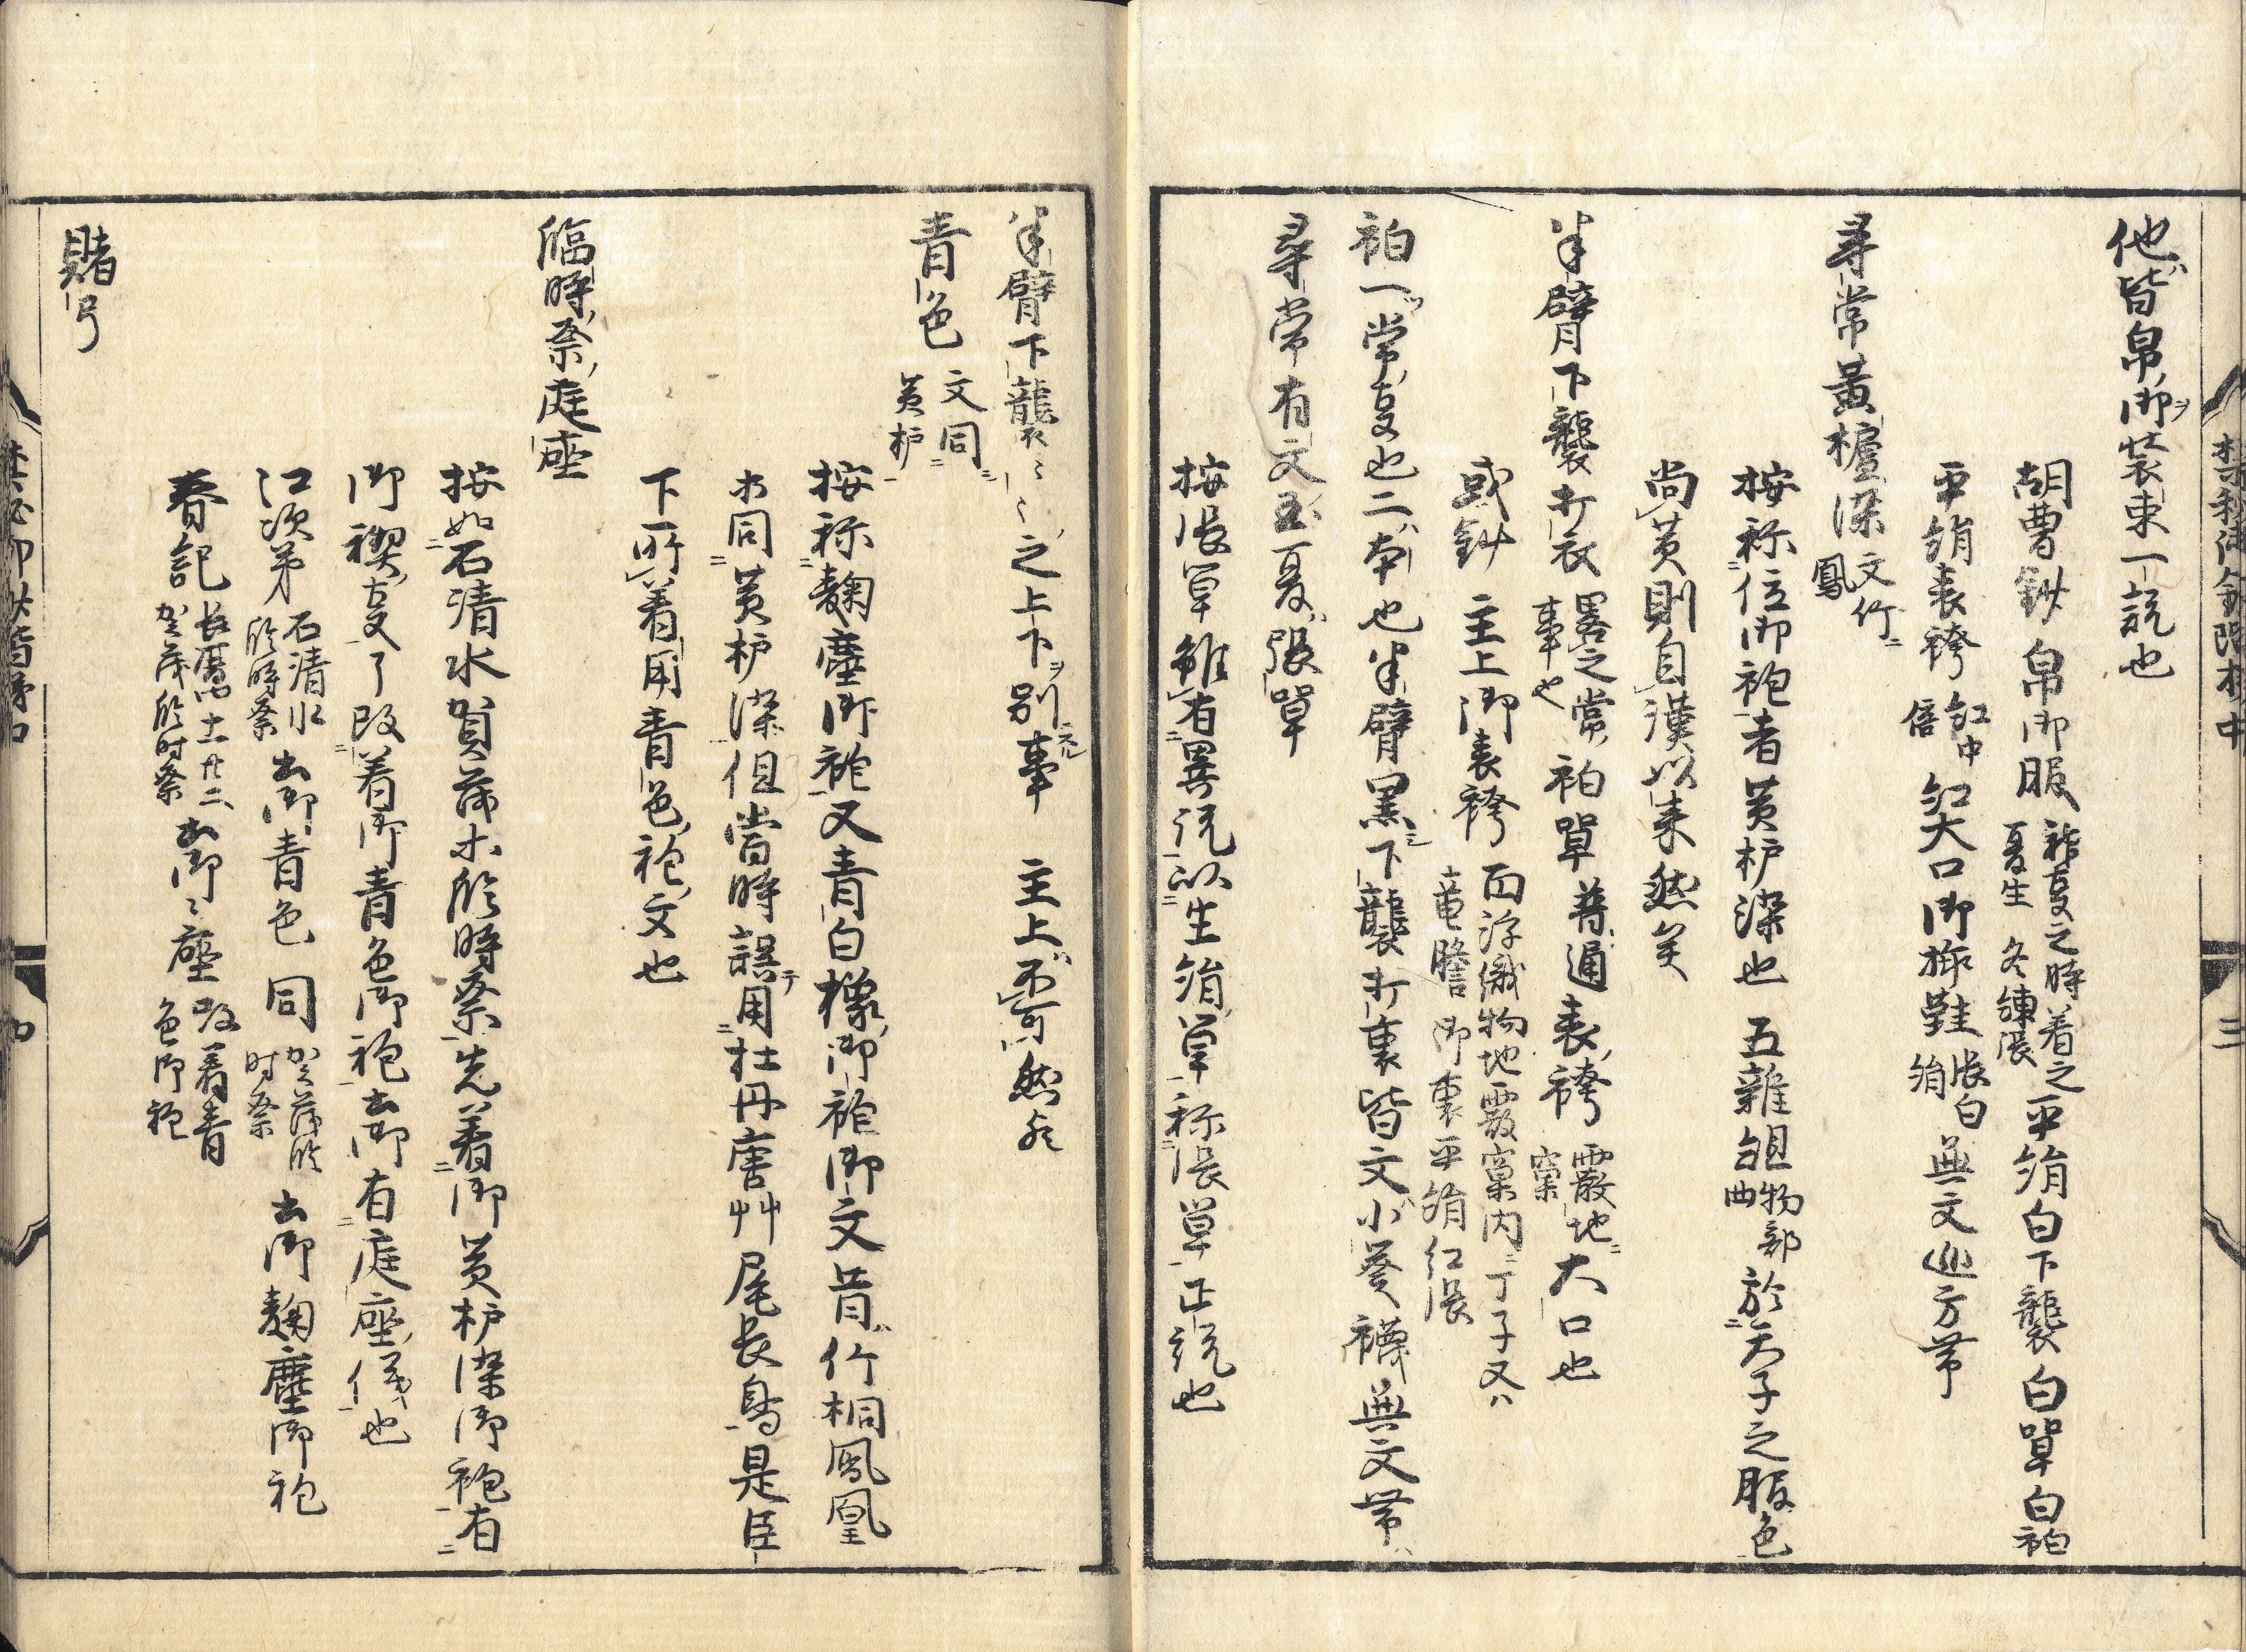 他皆帛御装束一説也
胡曹鈔 帛御服 神事之時着之 夏生 冬練張 平絹白下襲 白單 白衵
平絹表袴 紅中倍 紅大口御挿鞋 張白絹 無文巡方帯
尋常黄櫨染 文竹鳳
按称位御袍者黄栌染也 五雑俎 物部曲 於天子之服色
尚黄則自漢以来然矣
半臂下襲打衣 畧之常事也 衵單普通表袴 霰地窠 大口也
或鈔 主上御表袴 面浮織物地霰窠内ニ丁子又ハ竜膽 御裏平絹紅張
衵一ツ常事也二ハ本也半臂黒下襲打裏皆文小葵襪無文帯ハ
尋常有文玉夏ハ張單
按張單雖有異説以生絹單称張單正説也
半臂下襲ミミ之上下ヲ別事 主上ハ不可然於
青色 文同黄栌
按称麹塵御袍又青白橡御袍御文昔ハ竹桐鳳凰
木同黄栌染但當時誤テ用牡丹唐艸尾長鳥是臣
下所着用青色袍文也
臨時祭庭座
按如石清水賀茂木臨時祭先着御黄栌染御袍有
御禊事了改着御青色御袍出御有庭座儀也
江次第 石清水臨時祭 出御青色 同 賀茂臨時祭 出御麹塵御袍
春記 長暦 士 廿二 賀茂臨時祭 出御ミ座 改着青色御袍
賭弓